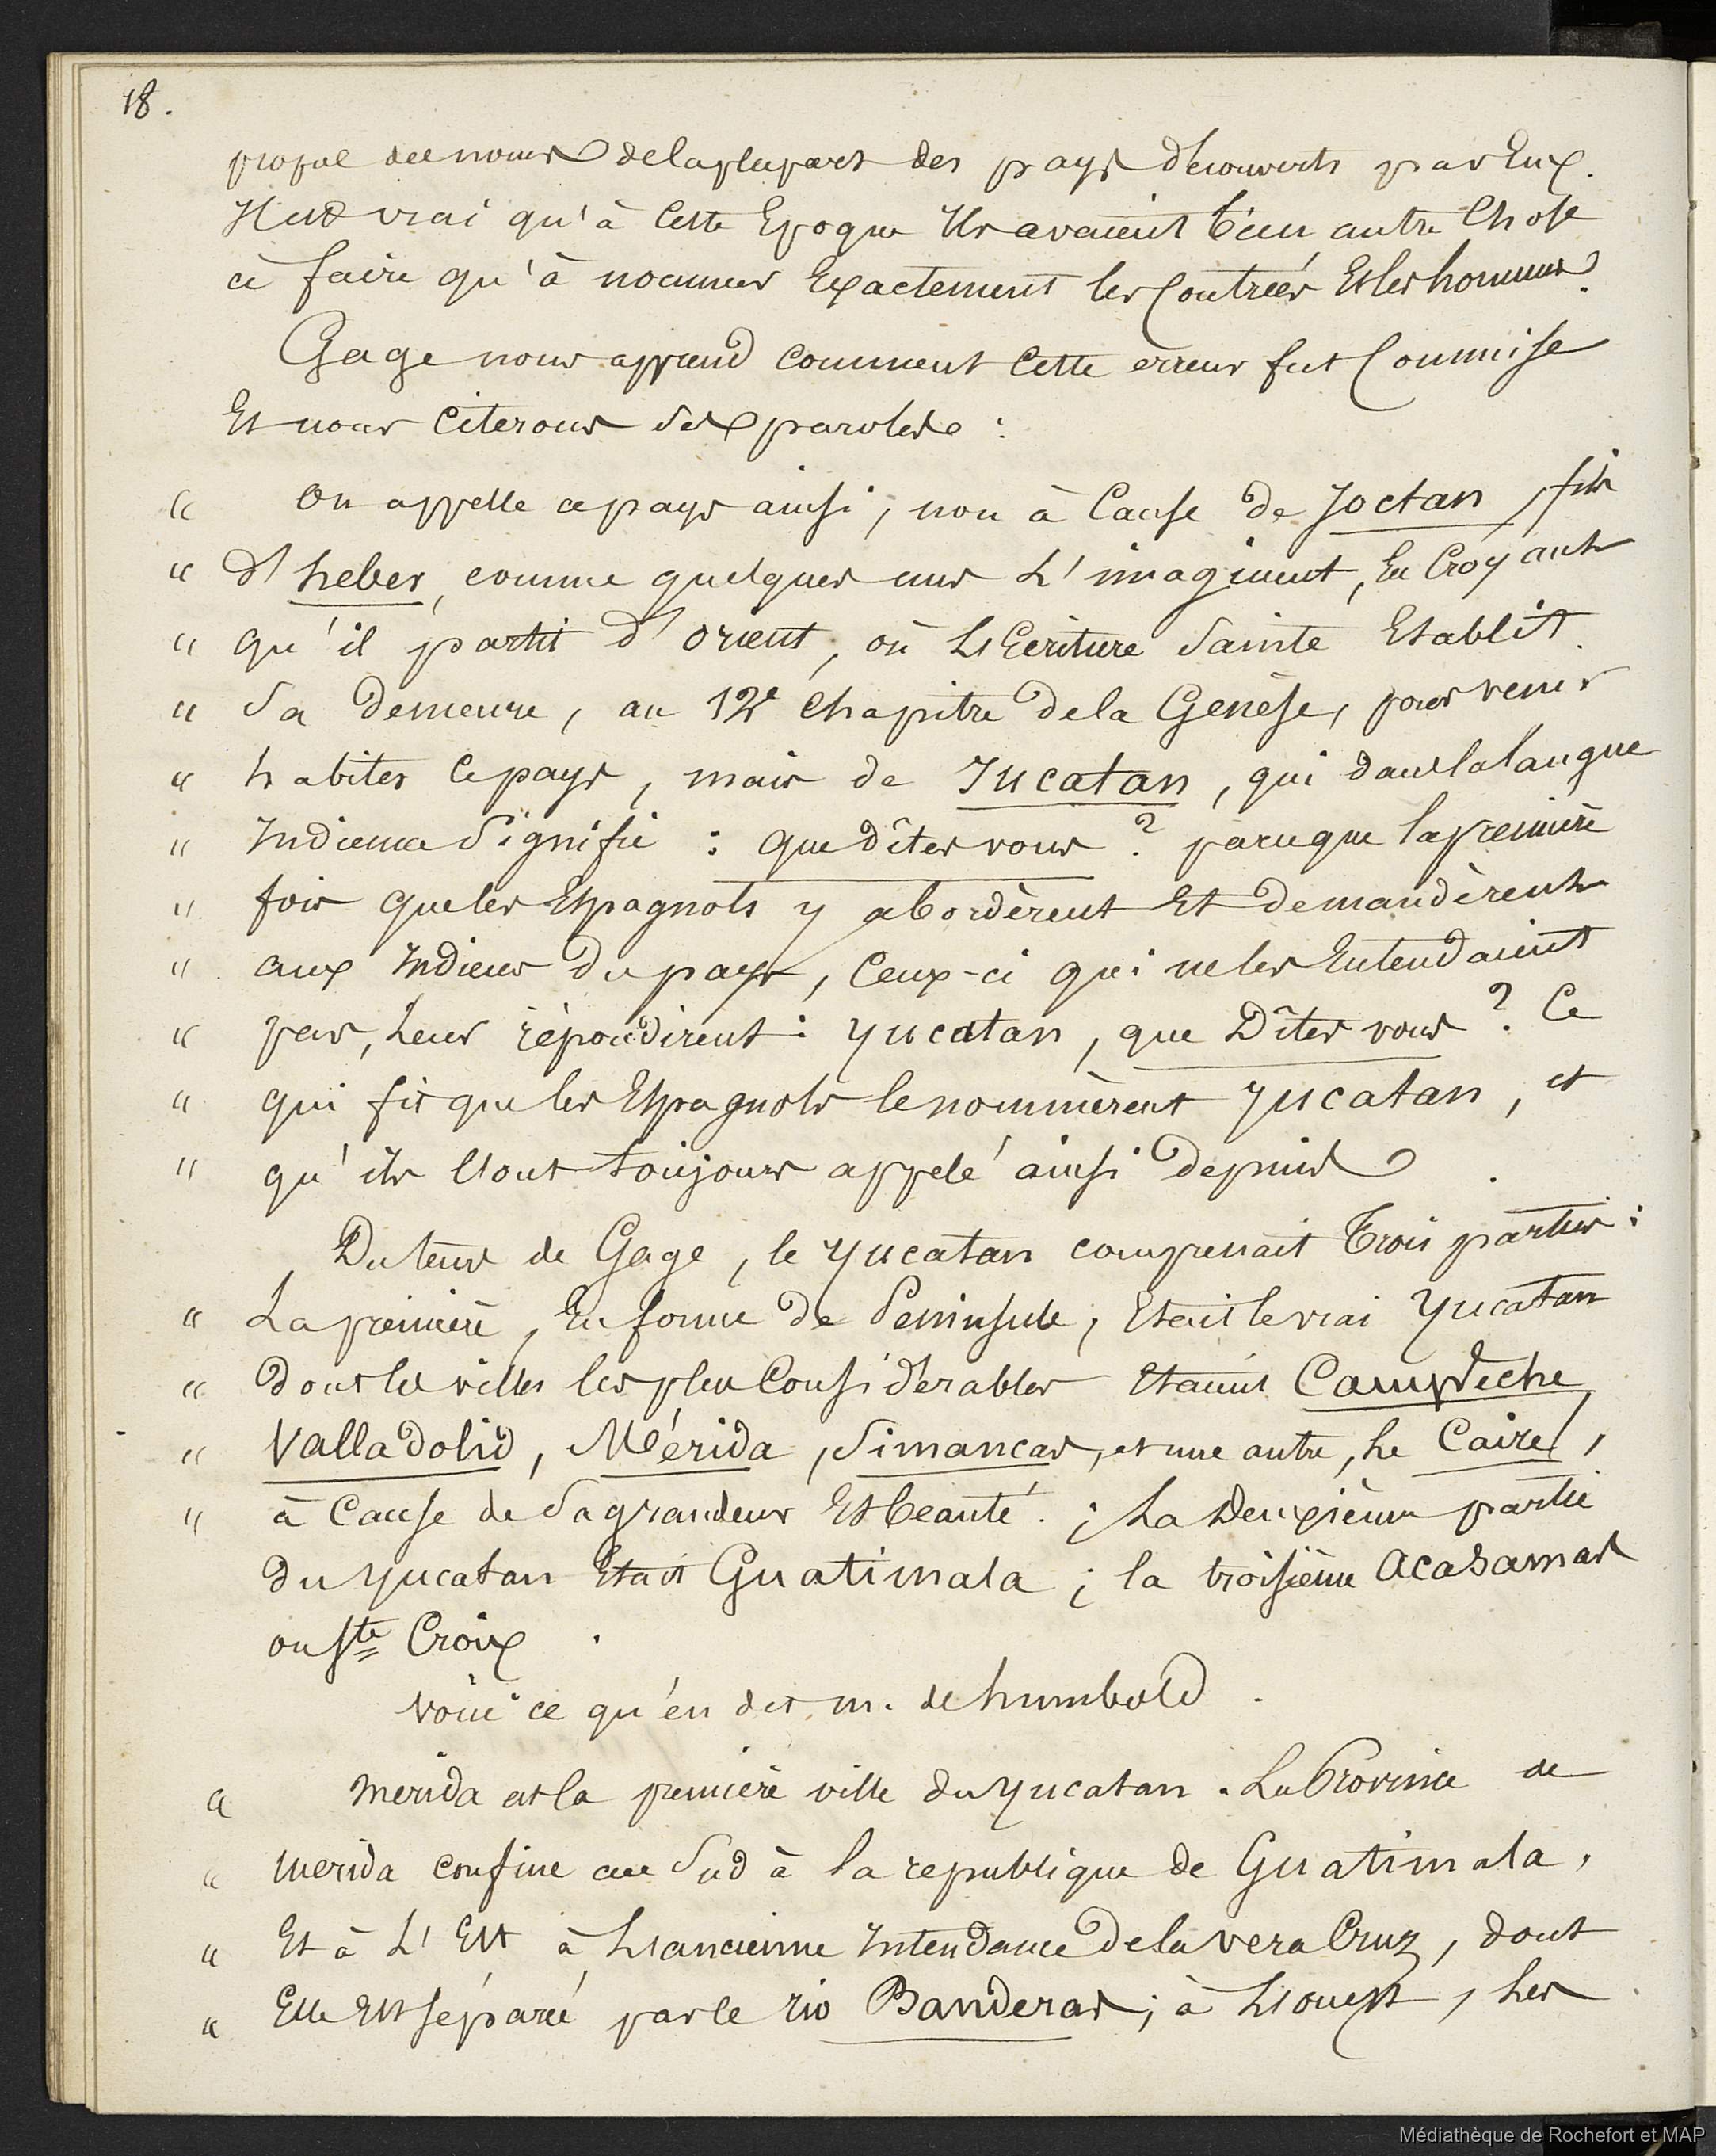 18.
propre des noms de la plupart des pays découverts par Eux.
Il est vrai qu'à Cette Epoque Ils avaient bien autre Chose
à faire qu'à nommer Exactement les Contrées Et les hommes.
Gage nous apprend comment Cette erreur fut Commise
Et nous Citerons ses paroles :
" On appelle ce pays ainsi, non à Cause de Joctan, fils
" d'heber, comme quelques uns L'imaginent, En Croyant
" qu'il partit d'orient, où L'Ecriture Sainte Etablit
" Sa Demeure, au 12e Chapitre de la Genèse, pour venir
" habiter Ce pays, mais de Jucatan, qui dans la langue
" Indienne Signifie : que dîtes vous ? parceque la première
" fois que les Espagnols y abordèrent Et Demandèrent
" aux Indiens du pays, Ceux-ci qui ne les Entendaient
" pas, Leur répondirent : yucatan, que Dîtes vous ? Ce
" qui fit que les Espagnols le nommèrent yucatan, et
" qu'ils l'ont toujours appelé ainsi Depuis .
Du tems de Gage, le yucatan comprenait Trois parties :
" La première, En forme de Peninsule, Etait le vrai Yucatan
" dont les villes les plus Considérables Etaient Campêche
" Valladolid, Mérida, Simancas, et une autre, Le Caire,
" à Cause de Sa grandeur Et beauté. ; La Deuxième partie
du yucatan Etait Guatimala ; la troisième Acasamas
ou Ste Croix .
Voici ce qu'en dit m. de humbold .
" Merida est la première ville du yucatan . La Province de
" Merida confine au Sud à la republique de Guatimala,
" Et à L'Est à L'ancienne Intendance de la vera Cruz, dont
" Elle Est séparée par le rio Banderas ; à L'ouest, Les
Médiathèque de Rochefort et MAP